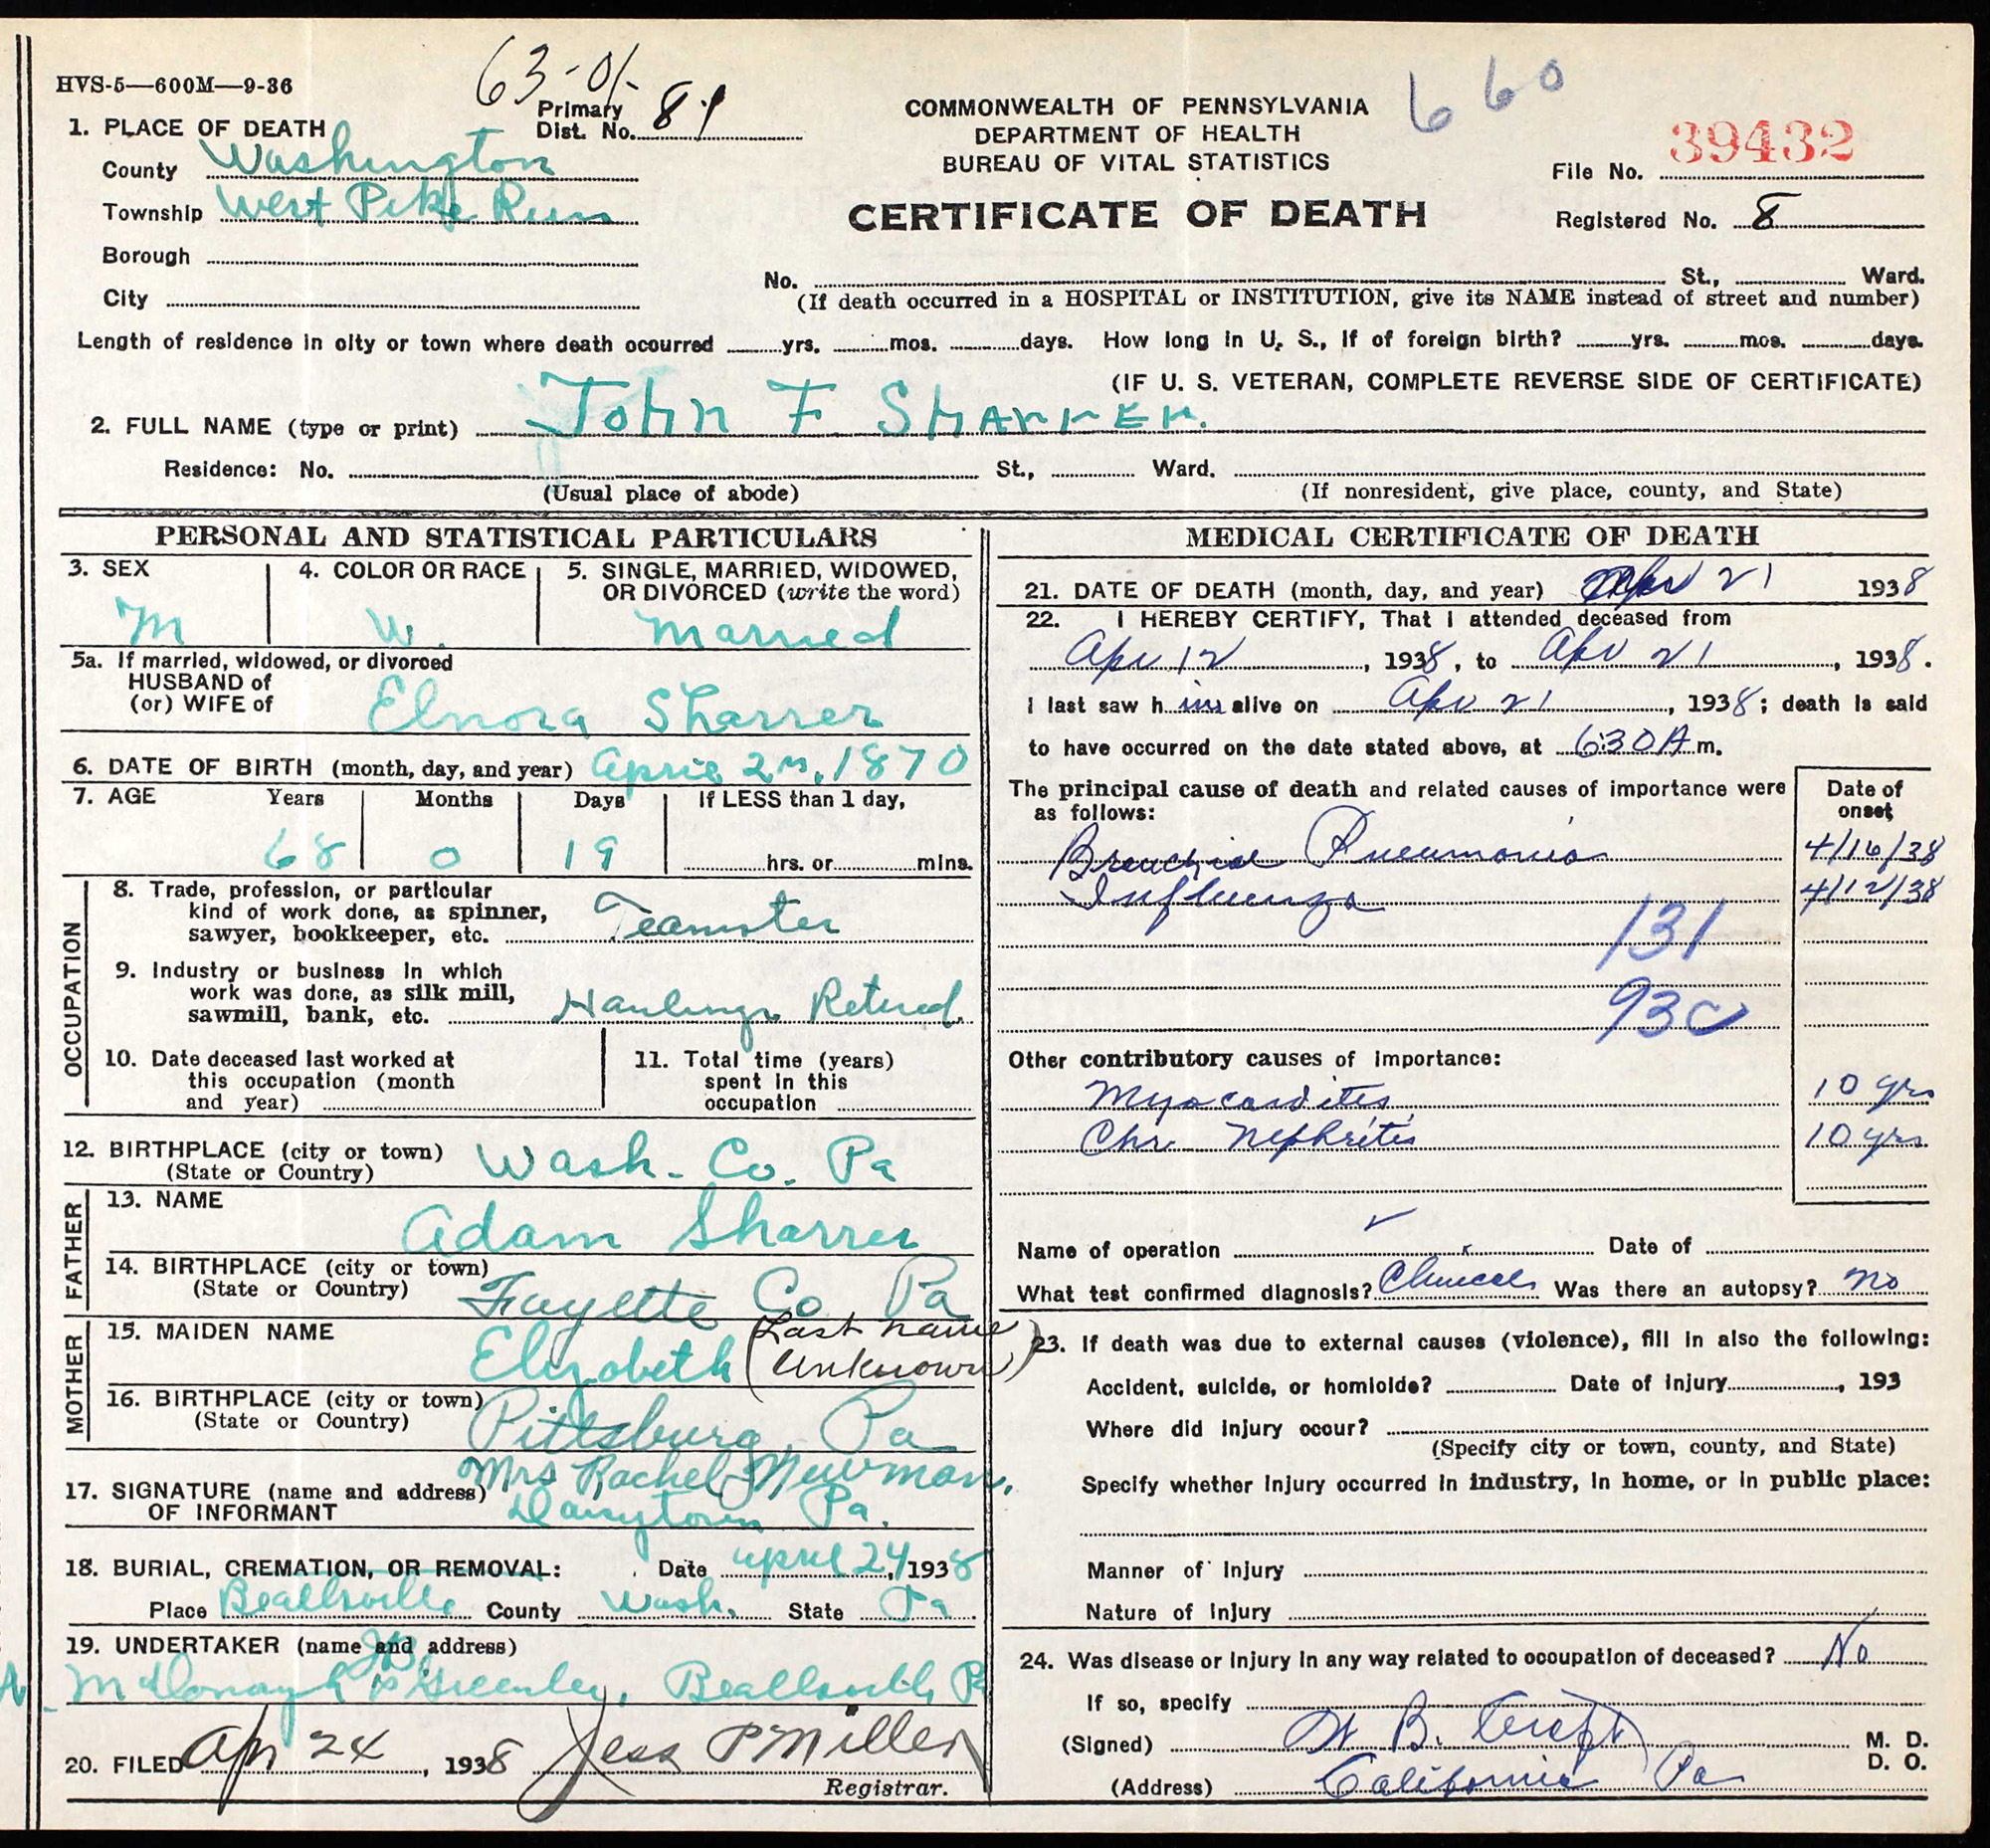 HVS-5—600M—9-36
63-01-
Primary
Dist. No. 81
COMMONWEALTH OF PENNSYLVANIA
DEPARTMENT OF HEALTH
BUREAU OF VITAL STATISTICS
CERTIFICATE OF DEATH
660
File No. 39432
Registered No. 8
1. PLACE OF DEATH
County Washington
Township West Pike Run
Borough
City
No. St., Ward.
(If death occurred in a HOSPITAL or INSTITUTION, give its NAME instead of street and number)
Length of residence in city or town where death occurred yrs. mos. days. How long in U. S., if of foreign birth? yrs. mos. days.
(IF U. S. VETERAN, COMPLETE REVERSE SIDE OF CERTIFICATE)
2. FULL NAME (type or print) John F Sharrer.
Residence: No. St., Ward.
(Usual place of abode) (If nonresident, give place, county, and State)
PERSONAL AND STATISTICAL PARTICULARS
3. SEX M
4. COLOR OR RACE W.
5. SINGLE, MARRIED, WIDOWED,
OR DIVORCED (write the word)
Married
5a. If married, widowed, or divorced
HUSBAND of
(or) WIFE of Elnora Sharrer
6. DATE OF BIRTH (month, day, and year) April 2nd, 1870
7. AGE Years Months Days If LESS than 1 day,
68 0 19 hrs. or mins.
OCCUPATION
8. Trade, profession, or particular
kind of work done, as spinner,
sawyer, bookkeeper, etc. Teamster
9. Industry or business in which
work was done, as silk mill,
sawmill, bank, etc. Hauling, Retired.
10. Date deceased last worked at
this occupation (month
and year)
11. Total time (years)
spent in this
occupation
12. BIRTHPLACE (city or town)
(State or Country) Wash. Co. Pa
FATHER
13. NAME
Adam Sharrer
14. BIRTHPLACE (city or town)
(State or Country) Fayette Co Pa
MOTHER
15. MAIDEN NAME
Elizabeth (Last name
unknown)
16. BIRTHPLACE (city or town)
(State or Country) Pittsburg, Pa
17. SIGNATURE (name and address) Mrs Rachel Newman,
OF INFORMANT Daisytown Pa.
18. BURIAL, CREMATION, OR REMOVAL: Date April 24, 1938
Place Beallsville County Wash. State Pa
19. UNDERTAKER (name and address)
McDonough & Greenlee, Beallsville Pa
20. FILED Apr 24, 1938 Jess P Miller
Registrar.
MEDICAL CERTIFICATE OF DEATH
21. DATE OF DEATH (month, day, and year) Apr 21 1938
22. I HEREBY CERTIFY, That I attended deceased from
Apr 12, 1938, to Apr 21, 1938.
I last saw him alive on Apr 21, 1938; death is said
to have occurred on the date stated above, at 6:30 A m.
The principal cause of death and related causes of importance were
as follows:
Date of
onset
Bronchial Pneumonia 4/16/38
Influenza 4/12/38
131
93c
Other contributory causes of importance:
Myocarditis, 10 yrs
Chr. Nephritis 10 yrs
Name of operation Date of
What test confirmed diagnosis? Clinical Was there an autopsy? no
23. If death was due to external causes (violence), fill in also the following:
Accident, suicide, or homicide? Date of injury , 193
Where did injury occur?
(Specify city or town, county, and State)
Specify whether injury occurred in industry, in home, or in public place:
Manner of injury
Nature of injury
24. Was disease or injury in any way related to occupation of deceased? No
If so, specify
(Signed) W B. Croft M. D.
D. O.
(Address) California Pa